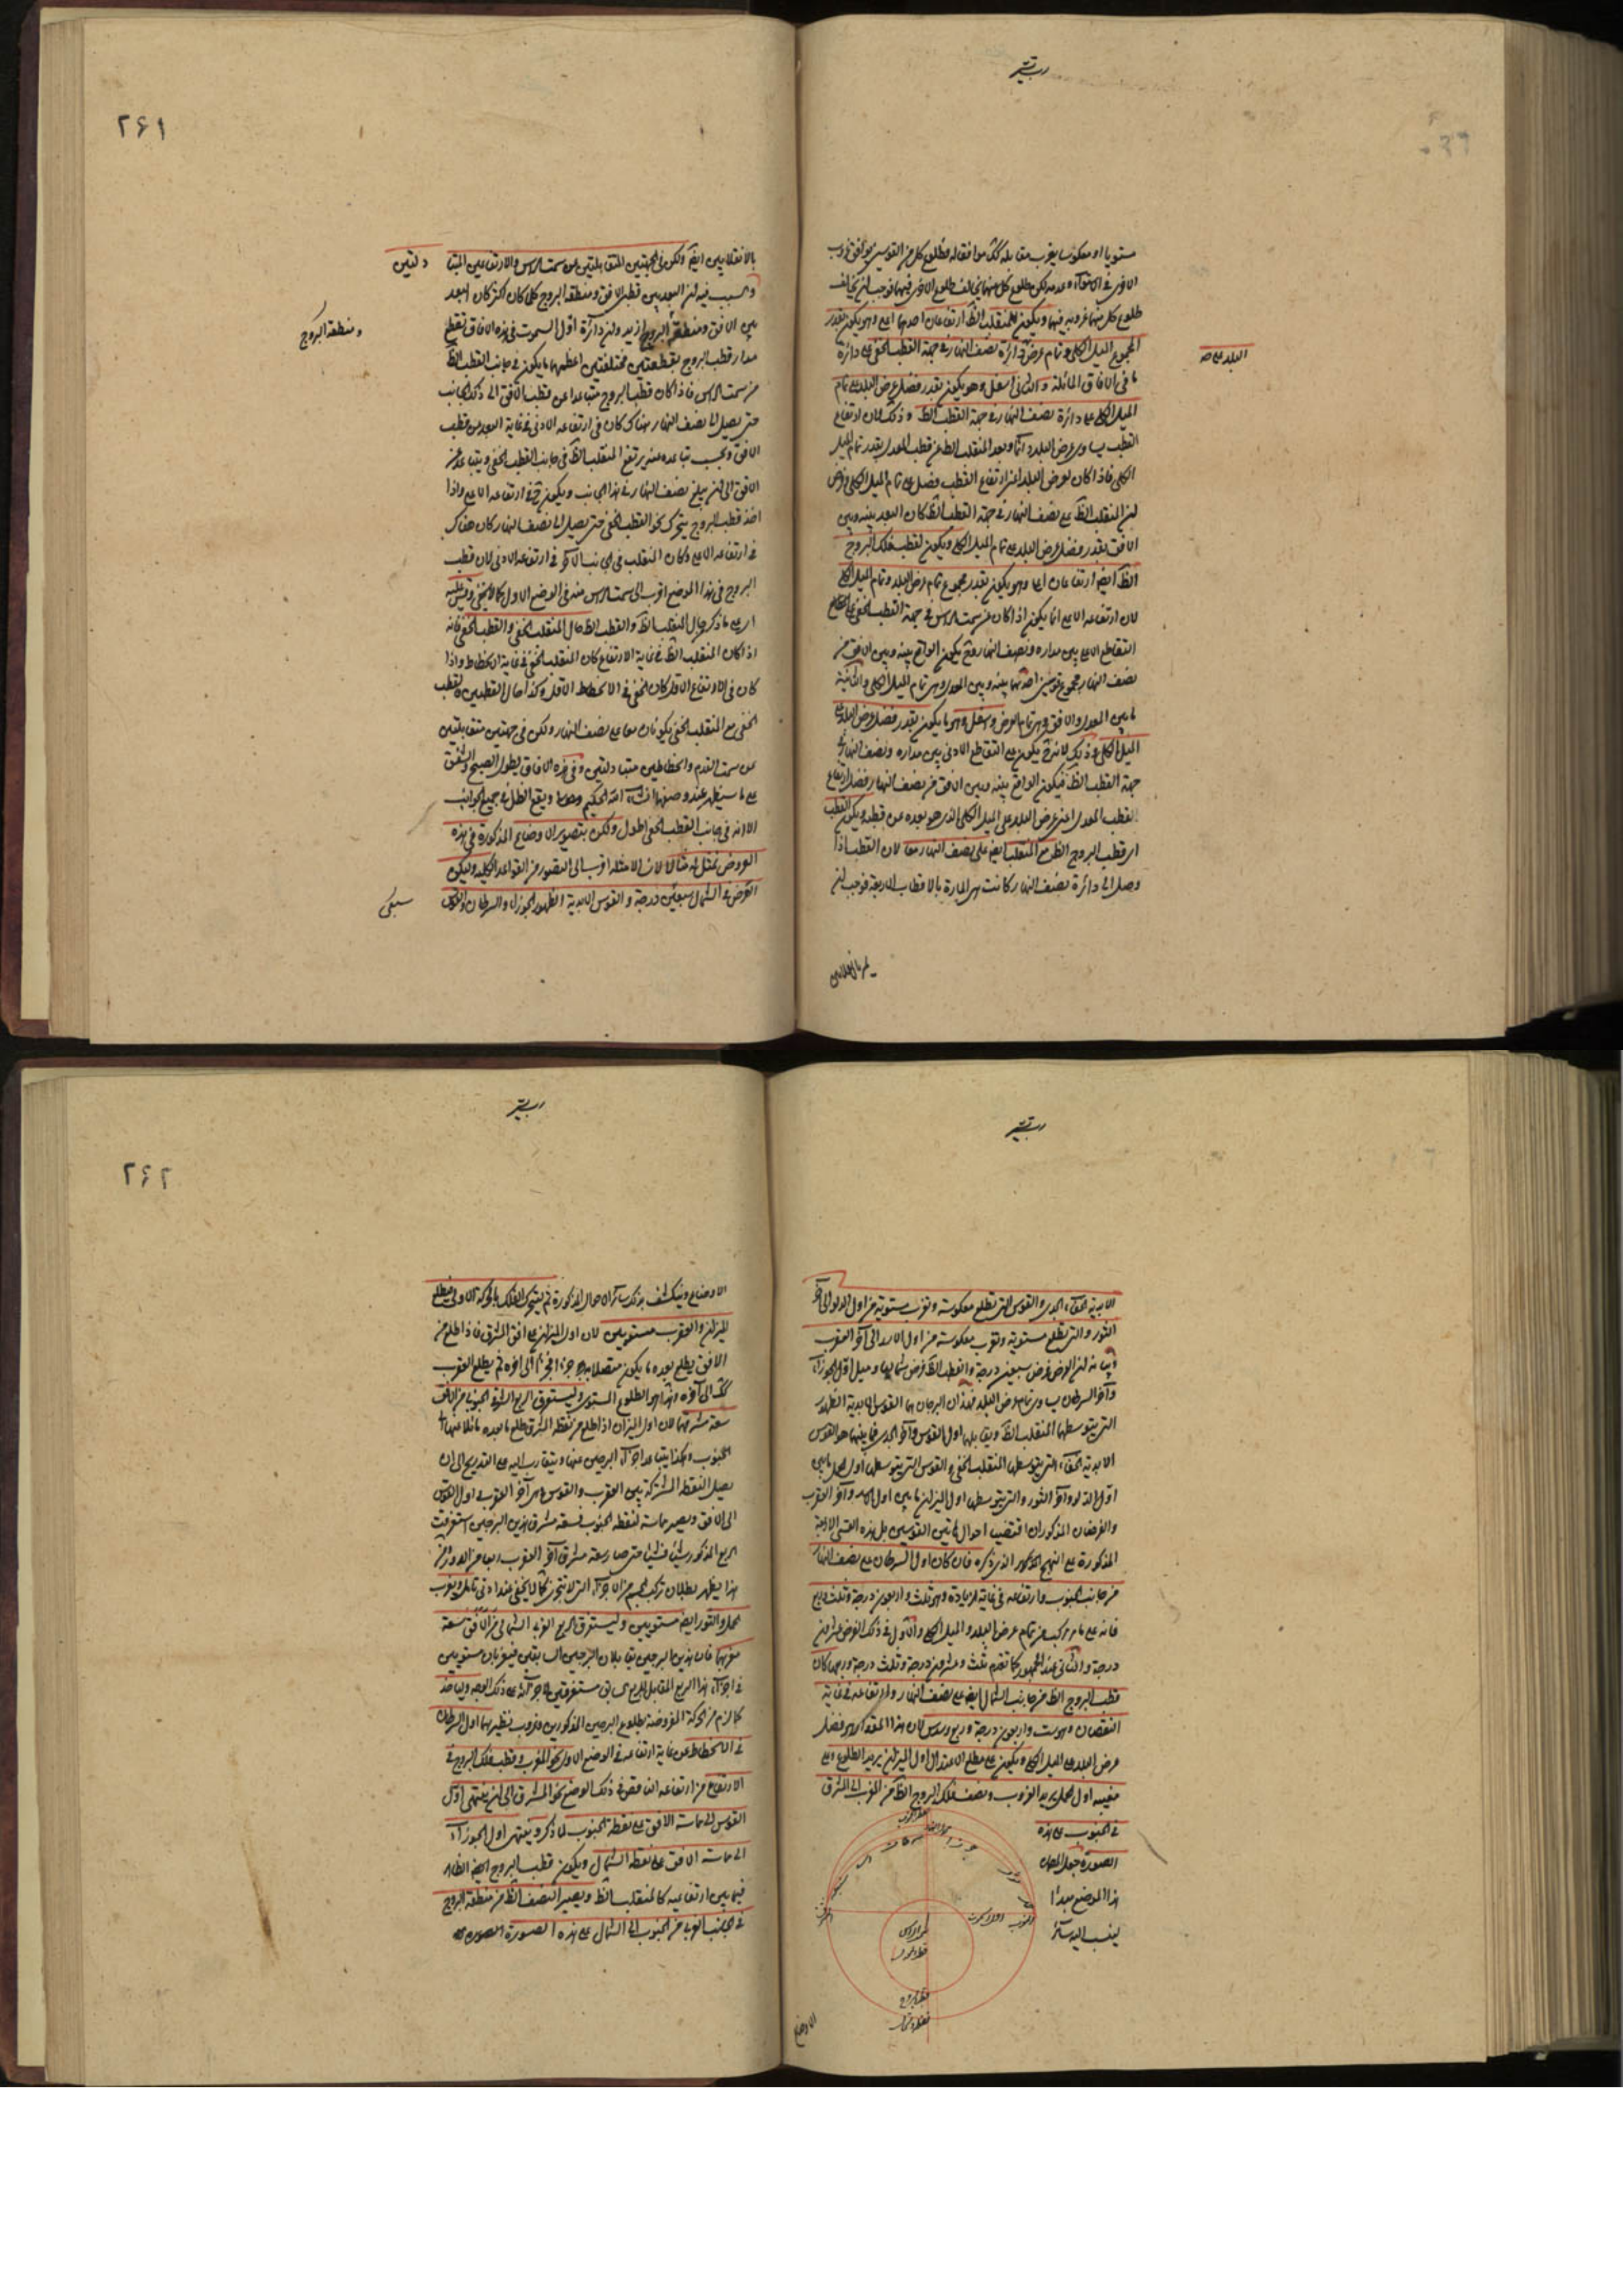 مستويا او معكوسا يغرب مقابله كك موافقا له فطلوع كل من القوسين يوافق غروب
الاخرى في الاستواء وعدمه لكن طلوع كل منهما يخالف طلوع الاخرى فيهما فوجب ان يخالف
طلوع كل منهما غروبه فيهما ويكون للمنقلب الظ ارتفاعان احدهما اعلى وهو يكون بقدر
مجموع الميل الكلى وتمام عرض دائرة نصف النهار في جهة القطب الخفى على دائرة
البلد على
ما في الافاق المائلة والثانى اسفل وهو يكون بقدر فضل عرض البلد على تمام
الميل الكلى على دائرة نصف النهار في جهة القطب الظ وذلك لان ارتفاع
القطب يساوى عرض البلد دائما وبعد المنقلب الظ عن قطب المعدل بقدر تمام الميل
الكلى فاذا كان لعرض البلد اعنى ارتفاع القطب فضل على تمام الميل الكلى وفرض
ان المنقلب الظ على نصف النهار في جهة القطب الظ كان البعد بينه وبين
الافق بقدر فضل عرض البلد على تمام الميل الكلى ويكون لقطب فلك البروج
الظ ايضا ارتفاعان اعلى وهو يكون بقدر مجموع تمام عرض البلد وتمام الميل الكلى
لان ارتفاعه الاعلى انما يكون اذا كان من سمت الراس في جهة القطب الخفى على التقاطع
التقاطع الاعلى بين مداره ونصف النهار وح يكون الواقع بينه وبين الافق من
نصف النهار مجموع قوسين احدهما بينه وبين المعدل وهى تمام الميل الكلى والثانية
ما بين المعدل والافق وهى تمام العرض واسفل وهو ما يكون بقدر فضل عرض البلد على
الميل الكلى وذلك لانه ح يكون على التقاطع الادنى بين مداره ونصف النهار في
جهة القطب الظ فيكون الواقع بينه وبين الافق من نصف النهار فضل ارتفاع
القطب المعدل اعنى عرض البلد على الميل الكلى الذى هو بعده عن قطبه ويكون القطب
اى قطب البروج الظ مع المنقلب ايضا على نصف النهار معا لان القطب اذا
وصل الى دائرة نصف النهار كانت هى المارة بالاقطاب الاربعة فوجب ان
بالانقلابين ايضا ولكن في الجهتين المتقابلتين عن سمت الراس والارتفاعين المتبا دلتين
والسبب فيه ان البعد بين قطب الافق ومنطقة البروج كل كان اكثر كان البعد
ومنطقة البروج
بين الافق ومنطقة البروج ازيد وان دائرة اول السموت في هذه الافاق تقطع
مدار قطب البروج بقطعتين مختلفتين اعظمهما ما يكون في جانب القطب الظ
من سمت الراس فاذا كان قطب البروج متباعدا عن قطب الافق الى ذلك الجانب
حتى يصل الى نصف النهار هناك كان في ارتفاعه الادنى في غاية البعد من قطب
الافق وبحسب تباعده عنه يرتفع المنقلب الظ في جانب القطب الخفى ويتباعد عن
الافق الى ان يبلغ نصف النهار في هذا الجانب ويكون ح في ارتفاعه الاعلى واذا
اخذ قطب البروج يتحرك نحو القطب الخفى حتى يصل الى نصف النهار كان هناك
في ارتفاعه الاعلى وكان المنقلب في الجانب الآخر في ارتفاعه الادنى لان قطب
البروج في هذا الموضع اقرب الى سمت الراس منه في الوضع الاول كما لا يخفى وقس عليه
اى على ما ذكر حال المنقلب الظ والقطب الظ حال المنقلب الخفى والقطب الخفى فانه
اذا كان المنقلب الظ في غاية الارتفاع كان المنقلب الخفى في غاية الانحطاط واذا
كان في الارتفاع الاقل كان الخفى في الانحطاط الاقل وكذا حال القطبين والقطب
الخفى مع المنقلب الخفى يكونان معا على نصف النهار ولكن في جهتين متقابلتين
عن سمت القدم والخطاطين متبادلتين وفي هذه الافاق يطول الصبح والشفق
على ما سيظهر عند وصفهما ان شاء الله الحكيم ويقع الظل في جميع الجوانب
الا انه في جانب القطب الخفى اطول ولكن بتصوير الاوضاع المذكورة في هذه
العروض نمثل له مثالا لان الامثلة اقرب الى التصور من القواعد الكلية وليكن
العرض في الشمال سبعين درجة والقوس الابدية الظهور الجوزاء والسرطان والقوس
٢٦١
الابدية الخفاء الجدى والقوس التى تطلع معكوسة وتغرب مستوية من اول الدلو الى آخر
الثور والتى تطلع مستوية وتغرب معكوسة من اول الاسد الى آخر العقرب
بيانه ان العرض فرض سبعين درجة والقطب الظ فرض شماليا وميل اول الجوزاء
وآخر السرطان يساوى تمام عرض البلد فهذان البرجان هما القوس الابدية الظهور
التى يتوسطها المنقلب الظ ويقابلهما اول القوس وآخر الجدى فما بينهما هو القوس
الابدية الخفاء التى يتوسطها المنقلب الخفى والقوس التى يتوسطها اول الحمل ما بين
اول الدلو وآخر الثور والتى يتوسطها اول الميزان ما بين اول الاسد وآخر العقرب
والفرضان المذكوران اقتضيا احوال هاتين القوسين بل هذه القسى الاربعة
المذكورة على النهج المذكور الذى ذكره فان كان اول السرطان على نصف النهار
من جانب الجنوب وارتفاعه في غاية الزيادة وهو ثلث واربعون درجة وثلث وربع
فانه على ما مر مركب من تمام عرض البلد والميل الكلى والاول في ذلك العرض عشرون
درجة والثانى عند الجمهور كما تقدم ثلث وعشرون درجة وثلث درجة وربع كان
قطب البروج الظ من جانب الشمال ايضا على نصف النهار وارتفاعه في غاية
النقصان وهو ست واربعون درجة وربع وسدس لان هذا المقدار هو فضل
عرض البلد على الميل الكلى ويكون على مطلع الاعتدال اول الميزان يريد الطلوع وعلى
مغيبه اول الحمل يريد الغروب ونصف فلك البروج الظ من المغرب الى المشرق
في الجنوب على هذه
الصورة جعل المص
هذا الموضع مبدأ
لينسب اليه سائر
الاوضاع
الاوضاع وينكشف بذلك سائر الاحوال المذكورة ثم يتحرك الفلك بالحركة الاولى فيطلع
الميزان والعقرب مستويين لان اول الميزان على افق المشرق فاذا طلع من
الافق يطلع بعده ما يكون متصلا به جزءا فجزءا الى آخره ثم يطلع العقرب
كك الى آخره وهذا هو الطلوع المستوى وليستغرق الربع الشرقى الجنوبى من الافق
سعة مشرقهما لان اول الميزان اذا طلع من نقطة المشرق طلع ما بعده مائلا عنها الى
الجنوب وهكذا يتباعد اجزاء البرجين عنها ويتقارب اليه على التدريج الى ان
يصل النقطة المشتركة بين العقرب والقوس هى آخر العقرب او اول القوس
الى الافق ويصير مماسة لنقطة الجنوب فسعة مشرق هذين البرجين استغرقت
الربع المذكور شيئا فشيئا حتى صار سعة مشرق آخر العقرب ربعا من الدور ومن
هذا يظهر بطلان تركب الجسم من الاجزاء التى لا تتجزى كما لا يخفى عند ادنى تامل ويغرب
الحمل والثور ايضا مستويين وليستغرق الربع الغربى الشمالى من الافق سعة
مغربهما فان هذين البرجين يقابلان البرجين السابقين فيغربان مستويين
في اجزاء هذا الربع المقابل للربع السابق مستغرقين لاجزائه على ذلك الوجه وياخذ
كما لزم من الحركة المفروضة بطلوع البرجين المذكورين وغروب نظيريهما اول السرطان
في الانحطاط عن غاية ارتفاعه في الوضع الاول نحو المغرب وقطب فلك البروج في
الارتفاع من ارتفاعه الناقص في ذلك الوضع نحو المشرق الى ان ينتهى اول
القوس الى مماسة الافق على نقطة الجنوب لما ذكر وينتهى اول الجوزاء
الى مماسة الافق على نقطة الشمال ويكون قطب البروج ايضا الظاهر
فيما بين ارتفاعيه كالمنقلب الظ ويصير النصف الظ من منطقة البروج
في الجانب الغربى من الجنوب الى الشمال على هذه الصورة
٢٦٢